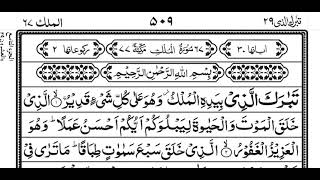 تبٰرك الذی ٢٩ ٥٠٩ الملك ٦٧
اٰیاتها ٣٠ ٦٧ سُوْرَةُ الْمُلْكِ مَكِّيَّةٌ ٧٧ رکوعاتها ٢
بِسْمِ اللّٰهِ الرَّحْمٰنِ الرَّحِيْمِ
تَبٰرَكَ الَّذِیْ بِیَدِهِ الْمُلْكُ وَهُوَ عَلٰی كُلِّ شَیْءٍ قَدِیْرُ ۙ الَّذِیْ
خَلَقَ الْمَوْتَ وَالْحَیٰوةَ لِیَبْلُوَكُمْ اَیُّكُمْ اَحْسَنُ عَمَلًا ؕ وَهُوَ
الْعَزِیْزُ الْغَفُوْرُ ۙ الَّذِیْ خَلَقَ سَبْعَ سَمٰوٰتٍ طِبَاقًا ؕ مَا تَرٰی فِیْ